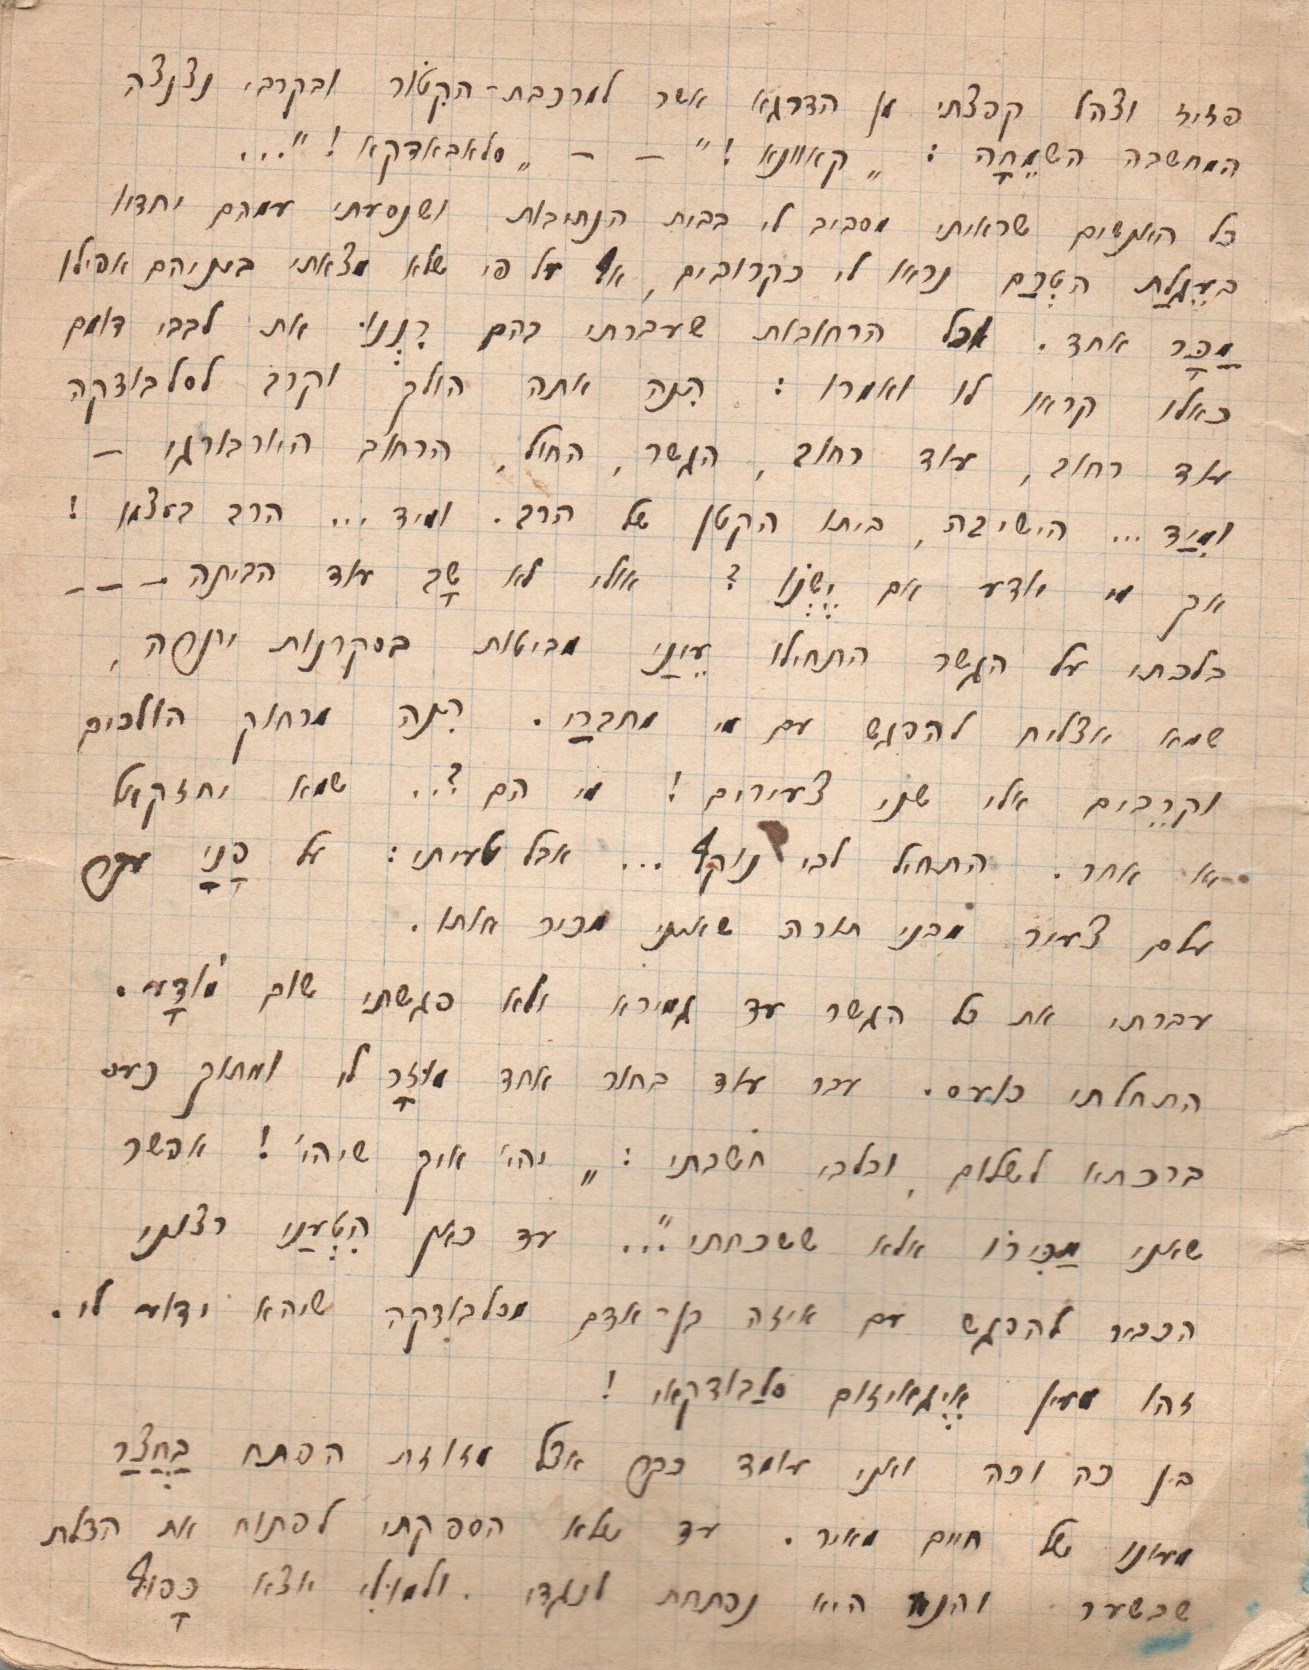 פזיז וצהל קפצתי מן הדרגא אשר למרכבת-הקטור ובקרבי נצנצה
המחשבה השמֵחָה : „קאוונא !" – – „סלאבאדקא ! "...
כל האנשים שראיתי מסביב לי בבית הנתיבות ושנסעתי עמהם יחדיו
בעֶגְלַת הטְרַם נראו לי כקרובים, אף על פי שלא מצאתי ביניהם אפילו
מַכָּר אחד. וכל הרחובות שעברתי בהם רִנְנוּ את לבבי דומם
כאלו קראו לו ואמרו : הִנה אתה הולך וקרב לסלבודקה
עוד רחוב, עוד רחוב, הגשר, החול, הרחוב היורבורגי –
ומִיַד ... הישיבה, ביתו הקטן של הרב. ומיד ... הרב בעצמו !
אך מי יודע אם יֶשְׁנוֹ ? אולי לא שָׁב עוד הביתה – – –
בלכתי על הגשר התחילו עֵינַי מביטות בסקרנות יתֵּרה,
שמא אצליח להפגש עם מי מחברַי. הִנה מרחוק הולכים
וקרֵבים אלי שני צעירים ! מי הם ?.. שמא יחזקאל
או אחר. התחיל לבי נוקף ... אבל טעיתי : על פָּנַי עבר
עלם צעיר מבני תורה שאיני מכיר אותו.
עברתי את כל הגשר עד גמירא ולא פגשתי שום מוֹדָע.
התחלתי כועס. עבר עוד בחור אחד מוּזָר לי ומתוך כעס
ברכתיו לשלום, ובלבי חשבתי : „יהי' איך שיהי' ! אפשר
שאני מַכִּירוֹ אלא ששכחתי"... עד כאן הִטְעַנִי רצוני
הכביר להפגש עם איזה בן-אדם מסלבודקה שיהא ידוע לי.
זהו מעין אֶיגאיזום סלַבודקאי !
בין כה וכה ואני עומד כבר אצל מזוזת הפתח בַּחֲצַר
מעונו של חיים מאיר. עד שלא הספקתי לפתוח את הדלת
שבשער והנה היא נפתחת לנגדי. ולמולי יצא כָּפוּף